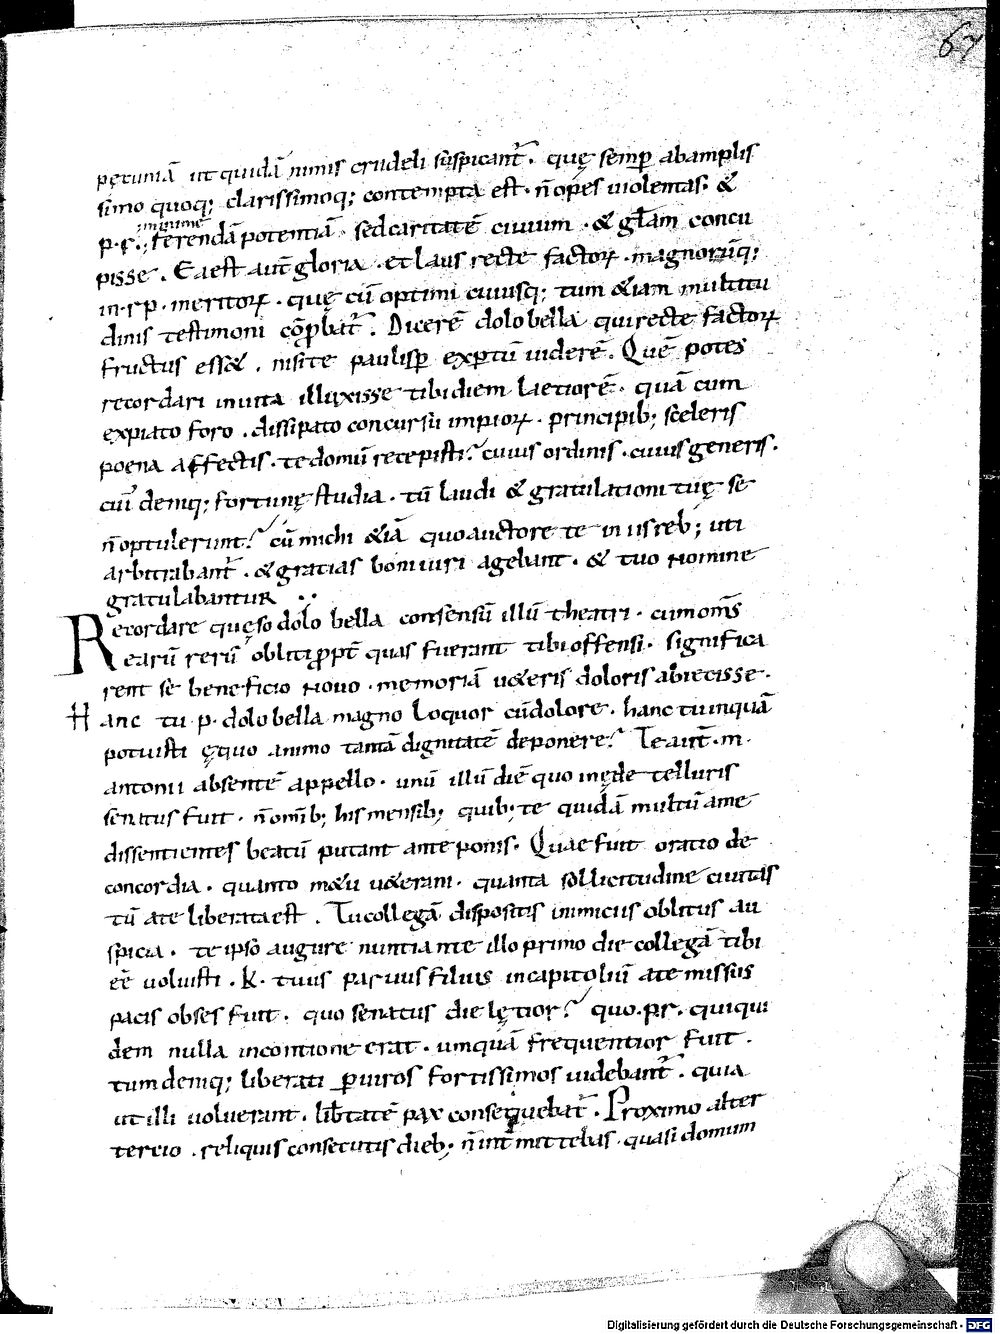 67
pęcuniā ut quidā nimis crudeli suspicant̄. quę semp̄ abamplis
simo quoq; clarissimoq; contempta est. n̄ opes uiolentas. &
minimē
p. r. ferendā potentiā. sed caritatē ciuium. & gl̄am concu
pisse. Ea est aut̄ gloria. et laus recte factoꝝ. magnorūq;
in. r p. meritoꝝ. quę cū optimi cuiusq; tum &iam multitu
dinis testimoni cōꝓbat̄. Dicerē dolobella qui recte factoꝝ
fructus ess&. nisi te paulisp̄ exp̄tū uiderē. Quē potes
recordari in uita illuxisse tibi diem laetiorē. quā cum
expiato foro. dissipato concursū impioꝝ. principib; sceleris
poena affectis. te domū recepisti? cuius ordinis. cuius generis.
cui' demq; fortunę studia. tū laudi & gratulationi tuę se
n̄ optulerunt? cū michi &iā quo auctore te in iis reb; uti
arbitrabant̄. & gratias boni uiri agebant. & tuo nomine
gratulabantur ..
Recordare quęso dolo bella consensū illū theatri. cum om̄s
earū rerū obliti ꝓpt̄ quas fuerant tibi offensi. significa
rent se beneficio nouo. memoriā u&eris doloris abiecisse.
Hanc tu p. dolobella magno loquor cū dolore. hanc tu inquā
potuisti ęquo animo tantā dignitatē deponere? Te aut̄. m.
antonii absentē appello. unū illū diē quo in ęde telluris
senatus fuit. n̄ om̄ib; his mensib; quib; te quidā multū a me
dissentientes beatū putant ante ponis. Quae fuit oratio de
concordia. quanto m&u u&erani. quanta sollicitudine ciuitas
tū a te liberata est. Tu collegā dispositis inimiciis oblitus au
spicia. te ipsō augure nuntiante illo primo die collegā tibi
eē̄ uoluisti. K. tuus paruus filius in capitoliū a te missus
pacis obses fuit. quo senatus die lętior? quo. p. r. qui qui
dem nulla in contione erat. umquā frequentior fuit.
tum demq; liberati ꝑ uiros fortissimos uidebant̄. quia
ut illi uoluerant. lib̄tatē pax consequebat̄. Proximo alter
tercio. reliquis consecutis dieb; n̄ int̄mittebas. quasi domum
Digitalisierung gefördert durch die Deutsche Forschungsgemeinschaft - DFG